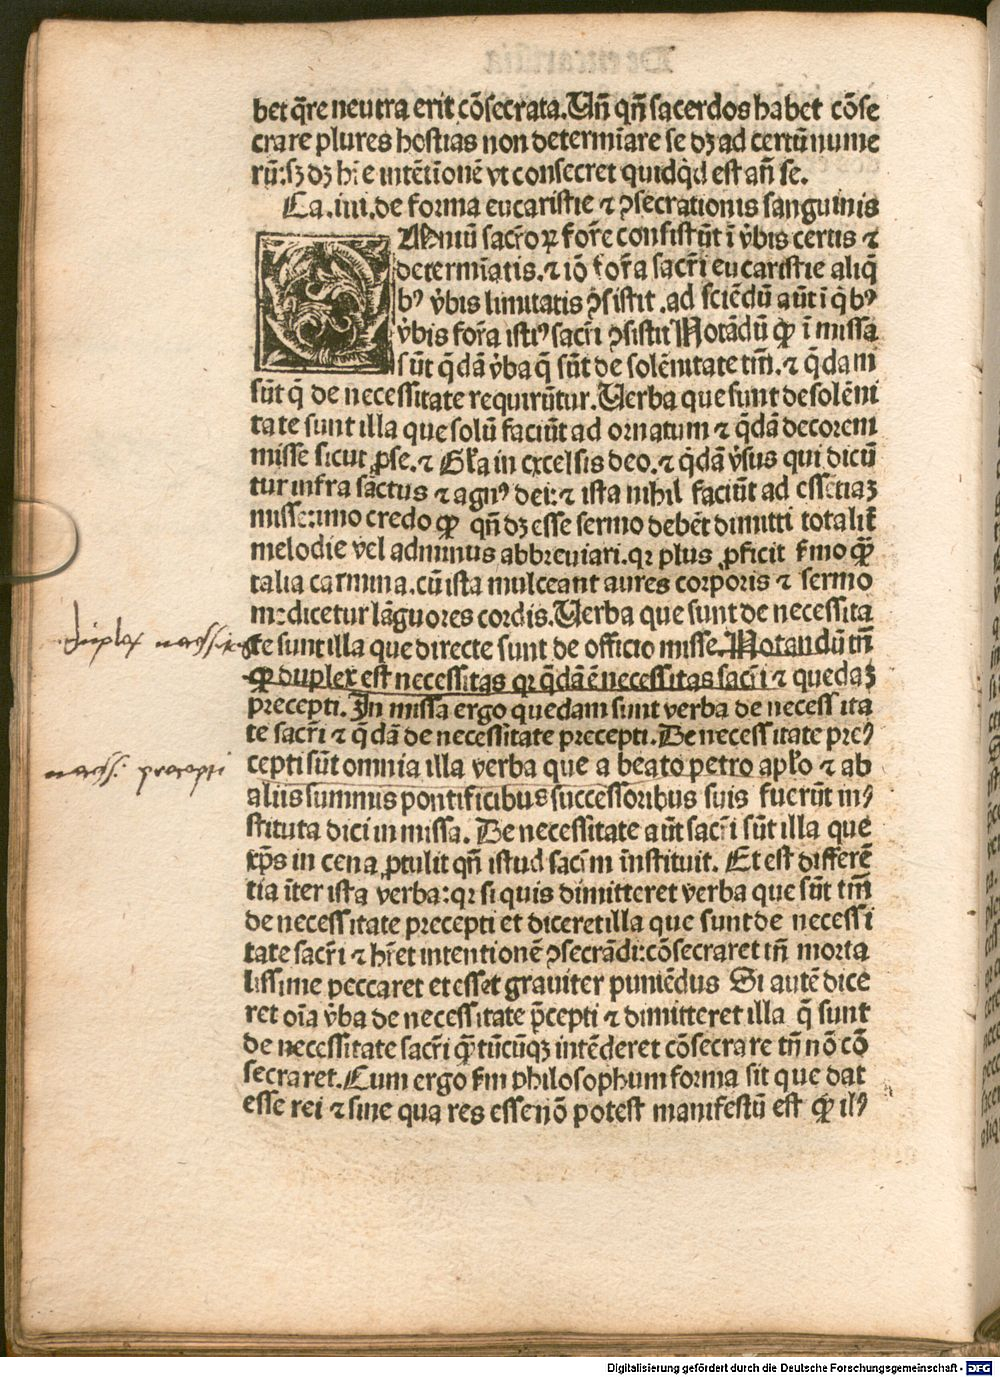 bet q̄re neutra erit cōsecrata. Uñ qñ sacerdos habet cōse
crare plures hostias non determīare se dꝫ ad certū nume
rū: sꝫ dꝫ hr̄e intētionē vt consecret quidqd̓ est añ se.
Ca. iiii. de forma eucaristie ⁊ ꝯsecrationis sanguinis
OMniū sacr̄oꝝ for̄e consistūt ī v̓bis certis ⁊
determīatis. ⁊ iō for̄a sacr̄i eucaristie aliq̄
bꝰ v̓bis limitatis ꝯsistit. ad sciēdū aūt ī qͥbꝰ
v̓bis for̄a istiꝰ sacr̄i ꝯsistit Notādū ꝙ ī missa
sūt q̄dā v̓ba q̄ sūt de solēnitate tm̄. ⁊ q̄dam
sūt q̄ de necessitate requirūtur. Uerba que sunt de solēni
tate sunt illa que solū faciūt ad ornatum ⁊ q̄dā decorem
misse sicut ꝓse. ⁊ Gl̓ia in excelsis deo. ⁊ q̄dā v̓sus qui dicū
tur infra sāctus ⁊ agnꝰ dei: ⁊ ista nihil faciūt ad essētiaꝫ
misse: imo credo ꝙ qñ dꝫ esse sermo debēt dimitti totalit̓
melodie vel adminus abbreviari. qꝛ plus ꝓficit s̓mo ꝙ̄
talia carmina. cū ista mulceant aures corporis ⁊ sermo
medicetur lāguores cordis. Uerba que sunt de necessita
duplex necessitas
te sunt illa que directe sunt de officio misse. Notandū tm̄
ꝙ duplex est necessitas qꝛ q̄dā ē necessitas sacr̄i ⁊ quedaꝫ
precepti. In missa ergo quedam sunt verba de necessita
te sacr̄i ⁊ q̄dā de necessitate precepti. De necessitate pre⸗
necessi. precepti
cepti sūt omnia illa verba que a beato petro apl̓o ⁊ ab
aliis summis pontificibus successoribus suis fuerūt in⸗
stituta dici in missa. De necessitate aūt sacr̄i sūt illa que
xp̄s in cena ꝓtulit qñ istud sacr̄m īnstituit. Et est differē
tia īter ista verba: qꝛ si quis dimitteret verba que sūt tm̄
de necessitate precepti et diceret illa que sunt de necessi
tate sacr̄i ⁊ hr̄et intentionē ꝯsecrādi: cōsecraret tñ morta
lissime peccaret et esset graviter puniēdus Si autē dice
ret oīa v̓ba de necessitate p̄cepti ⁊ dimitteret illa q̄ sunt
de necessitate sacr̄i ꝙ̄tūcūqꝫ intēderet cōsecrare tñ nō cō
secraret. Cum ergo s̓m philosophum forma sit que dat
esse rei ⁊ sine qua res esse nō potest manifestū est ꝙ il⸗
Digitalisierung gefördert durch die Deutsche Forschungsgemeinschaft - DFG